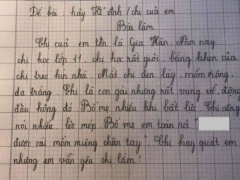 Đề bài: hãy tả anh / chị của em
Bài làm
Chị của em tên là Gia Hân. Năm nay
chị học lớp 11, chị học rất giỏi, bằng khen của
chị treo kín nhà. Mắt chị đen láy, mồm hồng,
da trắng. Chị là con gái nhưng rất vụng về, động
đâu hỏng đó. Bố mẹ nhiều khi bất lực. Chị cũng
nói nhiều lời mẹ. Bố mẹ em toàn nói "
được cái mồm miệng chân tay". Chị hay quát em
nhưng em vẫn yêu chị lắm!